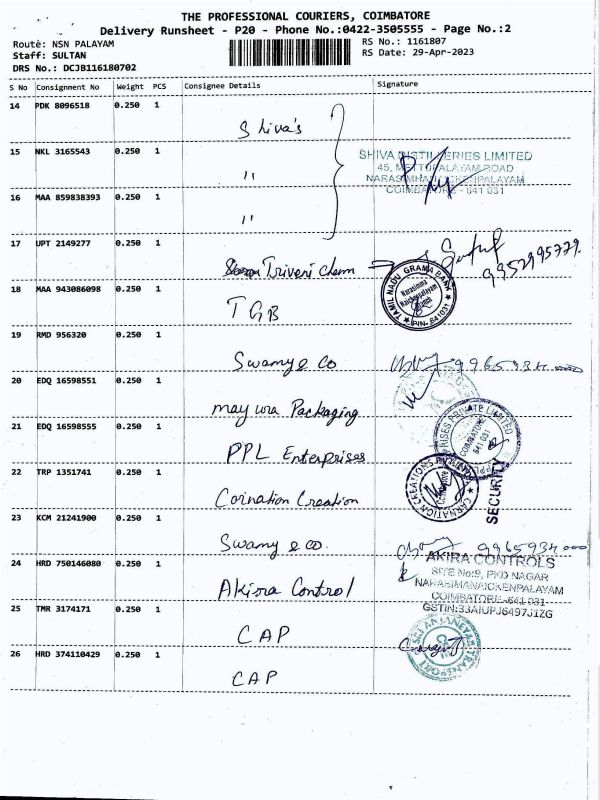 THE PROFESSIONAL COURIERS, COIMBATORE
Delivery Runsheet - P20 - Phone No.:0422-3505555 - Page No.:2
Route: NSN PALAYAM RS No.: 1161807
Staff: SULTAN RS Date: 29-Apr-2023
DRS No.: DCJB116180702
S No Consignment No Weight PCS Consignee Details Signature
14 PDK 8096518 0.250 1
Shiva's
15 NKL 3165543 0.250 1
"
SHIVA DISTILLERIES LIMITED
45, METTUPALAYAM ROAD
NARASIMHANAICKENPALAYAM
COIMBATORE - 641 031
16 MAA 859838393 0.250 1
"
17 UPT 2149277 0.250 1
Triveni Chem
9952995779
18 MAA 943086098 0.250 1
TGB
TAMIL NADU GRAMA BANK
Narasimma
Naickenpalayam
Branch
PIN- 641031
19 RMD 956320 0.250 1
Swamy & Co
20 EDQ 16598551 0.250 1
mayura Packaging
21 EDQ 16598555 0.250 1
PPL Enterprises
PRISES PRIVATE LIMITED
COIMBATORE
641 031
22 TRP 1351741 0.250 1
Cornation Creation
CARNATION CREATIONS PRIVATE
Coimbatore
SECURITY
23 KCM 21241900 0.250 1
Swamy & co.
24 HRD 750146080 0.250 1
Akira Control
AKIRA CONTROLS
SITE No:9, PKD NAGAR
NARASIMANAICKENPALAYAM
COIMBATORE-641 031
GSTIN:33AIUPJ6497J1ZG
25 TMR 3174171 0.250 1
CAP
26 HRD 374110429 0.250 1
CAP